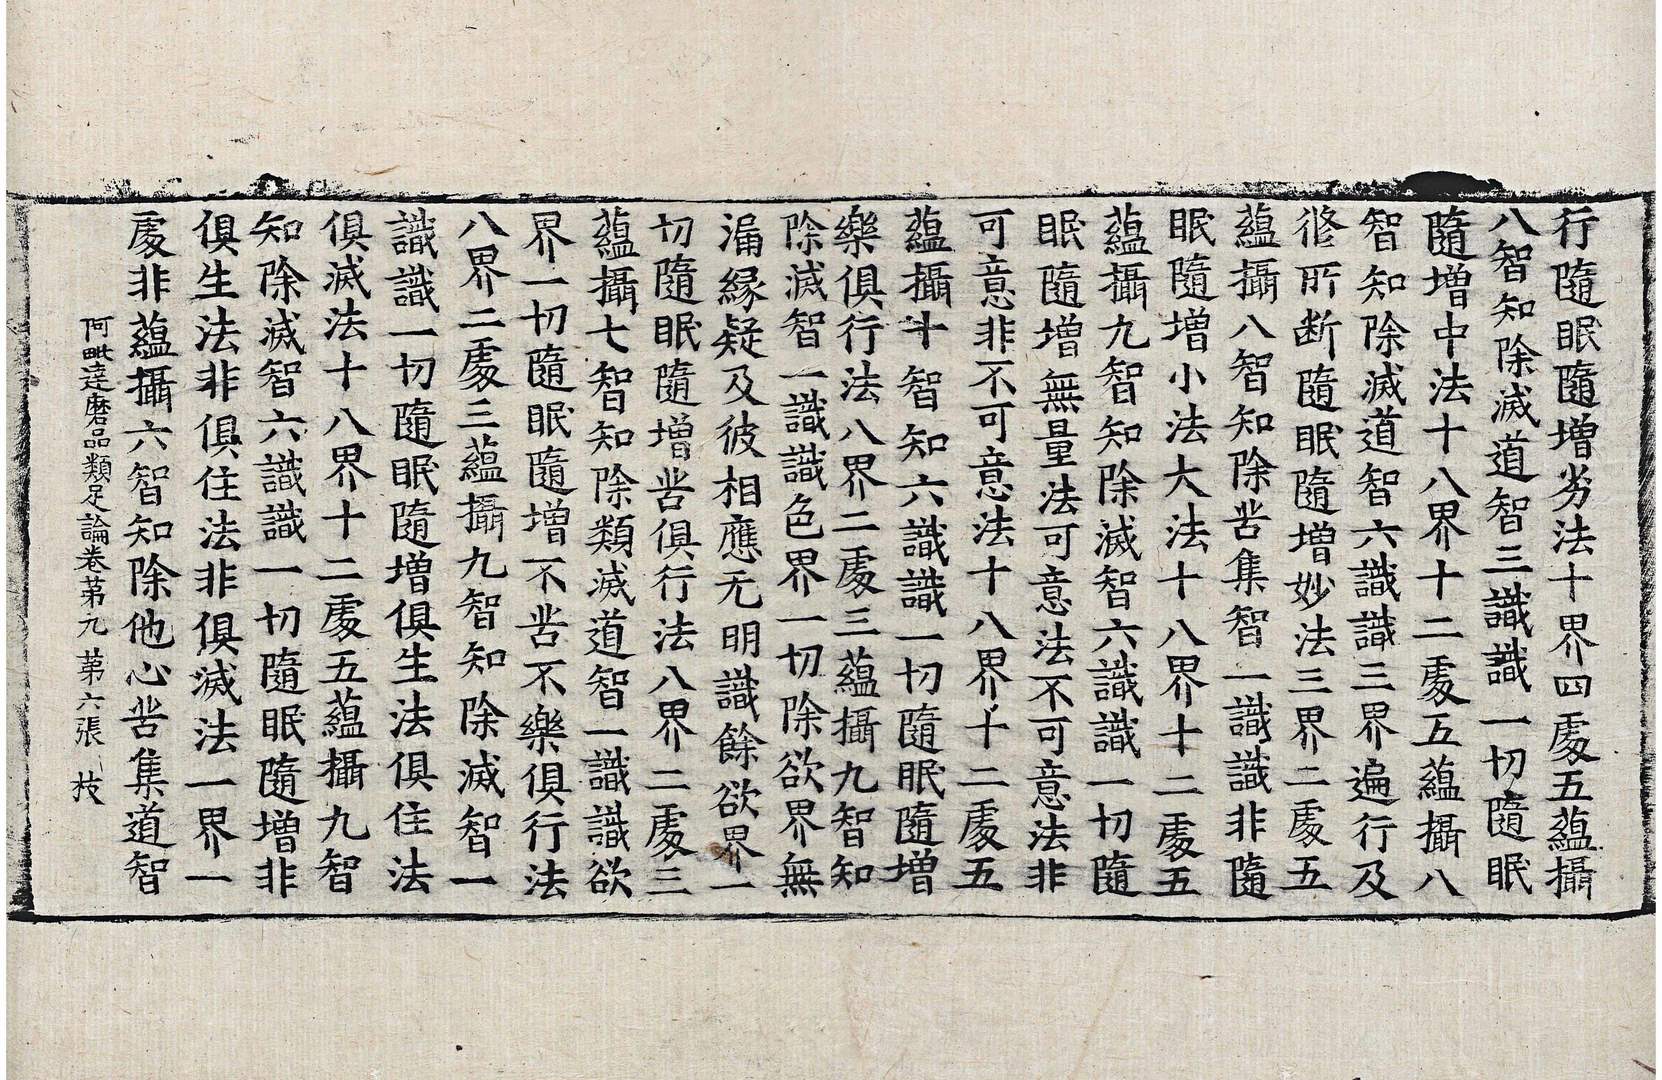 行隨眠隨增劣法十界四處五蘊攝
八智知除滅道智三識識一切隨眠
隨增中法十八界十二處五蘊攝八
智知除滅道智六識識三界遍行及
修所断隨眠隨增妙法三界二處五
蘊攝八智知除苦集智一識識非隨
眠隨增小法大法十八界十二處五
蘊攝九智知除滅智六識識一切隨
眠隨增無量法可意法不可意法非
可意非不可意法十八界十二處五
蘊攝十智知六識識一切隨眠隨增
樂俱行法八界二處三蘊攝九智知
除滅智一識識色界一切除欲界無
漏緣疑及彼相應无明識餘欲界一
切隨眠隨增苦俱行法八界二處三
蘊攝七智知除類滅道智一識識欲
界一切隨眠隨增不苦不樂俱行法
八界二處三蘊攝九智知除滅智一
識識一切隨眠隨增俱生法俱住法
俱滅法十八界十二處五蘊攝九智
知除滅智六識識一切隨眠隨增非
俱生法非俱住法非俱滅法一界一
處非蘊攝六智知除他心苦集道智
阿毗達磨品類足論卷苐九 苐六張 枝